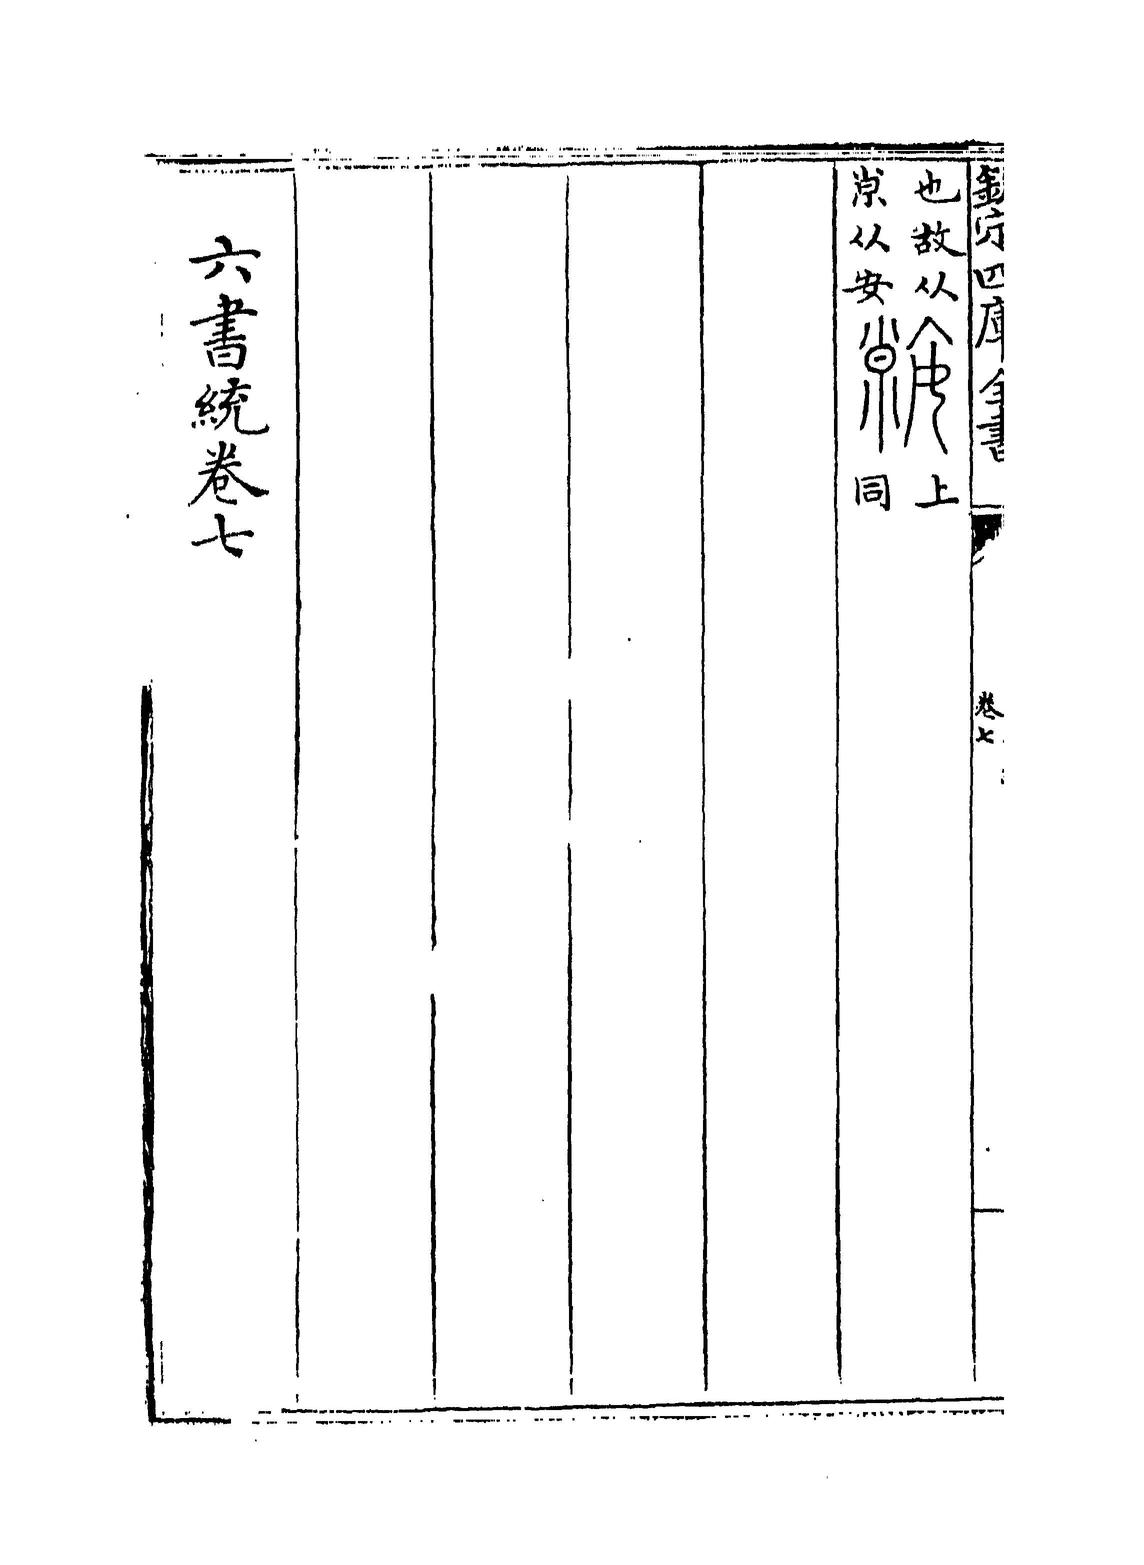 欽定四庫全書
卷七
也故从
㡿从安
上
同
六書統卷七